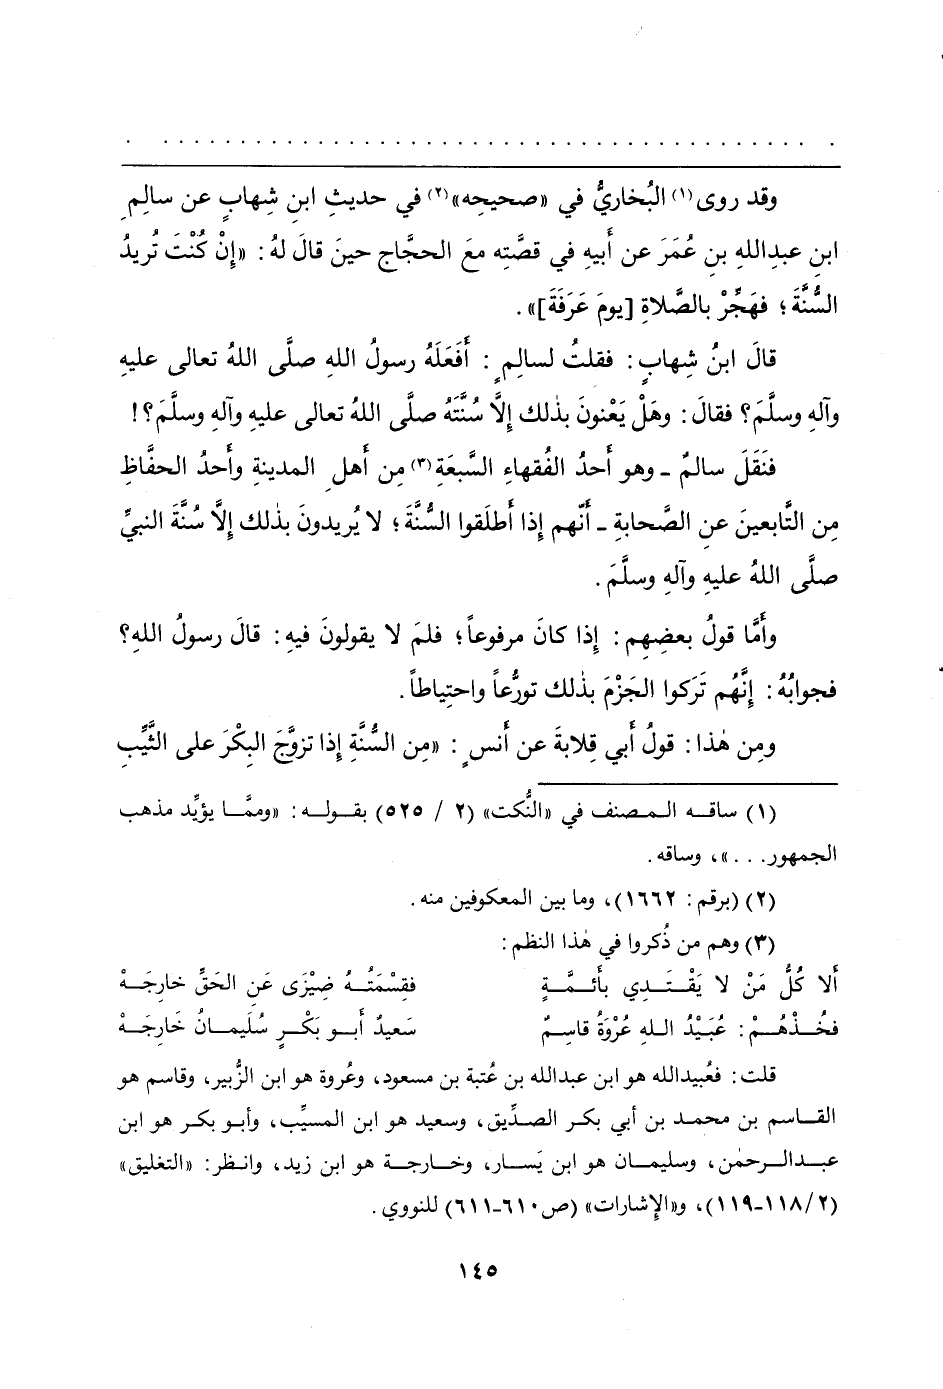 وقد روى(١) البُخاريُّ في «صحيحِه»(٢) في حديثِ ابنِ شِهابٍ عن سالِمِ
ابنِ عبدِاللهِ بنِ عُمَرَ عن أَبيهِ في قصَّتِه معَ الحجَّاجِ حينَ قالَ لهُ: «إِنْ كُنْتَ تُريدُ
السُّنَّةَ؛ فهَجِّرْ بالصَّلاةِ [يومَ عَرَفَةَ]».
قالَ ابنُ شِهابٍ: فقلتُ لسالِمٍ: أَفَعَلَهُ رسولُ اللهِ صلَّى اللهُ تعالى عليهِ
وآلهِ وسلَّمَ؟ فقالَ: وهَلْ يَعْنونَ بذٰلك إِلَّا سُنَّتَهُ صلَّى اللهُ تعالى عليهِ وآلهِ وسلَّمَ؟!
فنَقَلَ سالمٌ ـ وهو أَحدُ الفُقهاءِ السَّبعَةِ(٣) مِن أَهلِ المدينةِ وأَحدُ الحفَّاظِ
مِن التَّابعينَ عنِ الصَّحابةِ ـ أَنَّهم إِذا أَطلَقوا السُّنَّةَ؛ لا يُريدونَ بذٰلك إِلَّا سُنَّةَ النبيِّ
صلَّى اللهُ عليهِ وآلهِ وسلَّمَ.
وأَمَّا قولُ بعضِهِم: إِذا كانَ مرفوعاً؛ فلمَ لا يقولونَ فيهِ: قالَ رسولُ اللهِ؟
فجوابُهُ: إِنَّهُم تَرَكوا الجَزْمَ بذٰلك تورُّعاً واحتِياطاً.
ومِن هٰذا: قولُ أَبي قِلابةَ عن أَنسٍ: «مِن السُّنَّةِ إِذا تزوَّجَ البِكْرَ على الثَّيِّبِ
(١) ساقه المصنف في «النُّكت» (٢ / ٥٢٥) بقوله: «وممَّا يؤيِّد مذهب
الجمهور. . .»، وساقه.
(٢) (برقم: ١٦٦٢)، وما بين المعكوفين منه.
(٣) وهم من ذُكروا في هٰذا النظم:
أَلا كُلُّ مَنْ لا يَقْتَدِي بأَئمَّةٍ فقِسْمَتُهُ ضِيْزَى عَنِ الحَقِّ خارِجَهْ
فخُذْهُمْ: عُبَيْدُ اللهِ عُرْوَةُ قاسِمٌ سَعيدٌ أَبو بَكْرٍ سُلَيمانُ خَارِجَهْ
قلت: فعُبيدالله هو ابن عبدالله بن عُتبة بن مسعود، وعُروة هو ابن الزُّبير، وقاسم هو
القاسم بن محمد بن أبي بكر الصدِّيق، وسعيد هو ابن المسيِّب، وأبو بكر هو ابن
عبدالرحمٰن، وسليمان هو ابن يَسار، وخارجة هو ابن زيد، وانظر: «التغليق»
(٢/ ١١٨ـ١١٩)، و«الإشارات» (ص٦١٠ـ٦١١) للنووي.
١٤٥